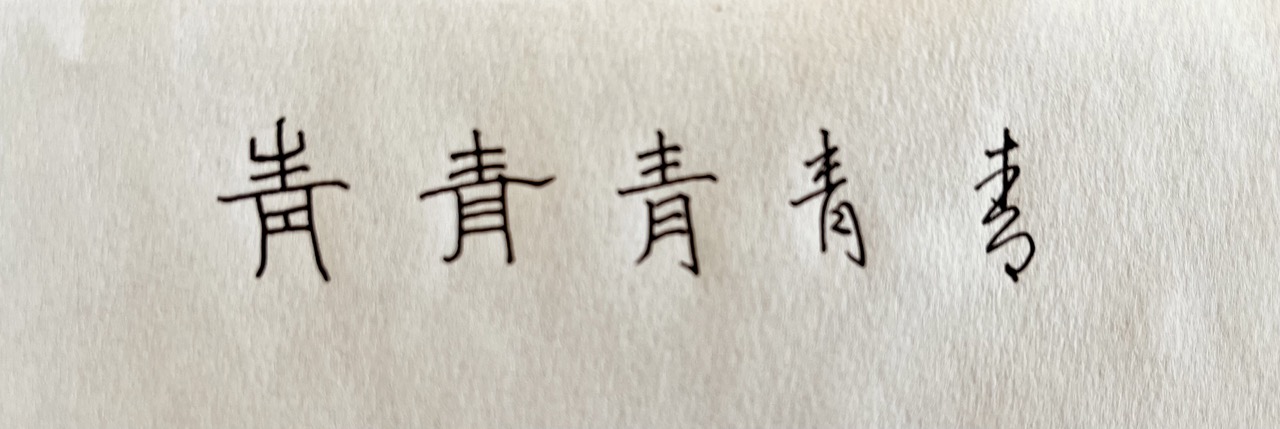 青青青青青